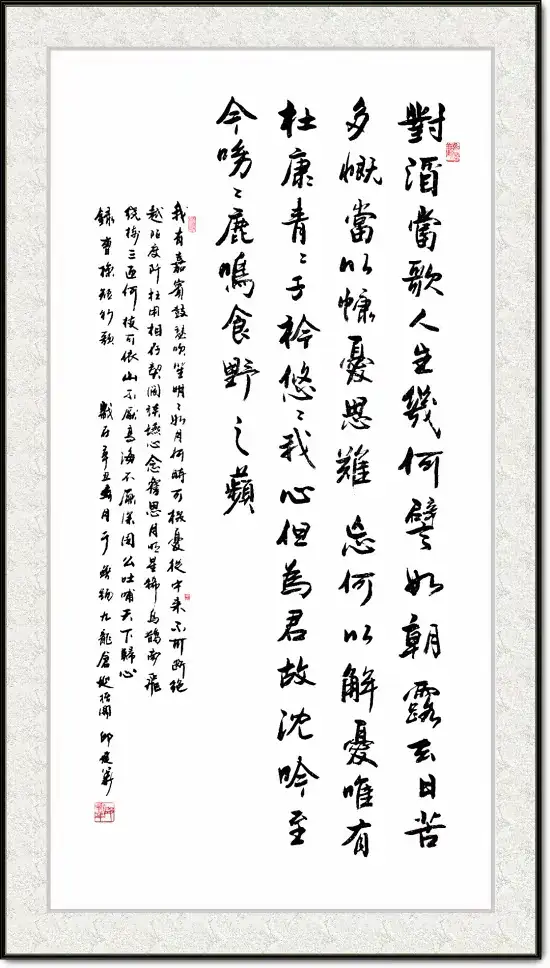 對酒當歌人生幾何譬如朝露去日苦
多慨當以慷憂思難忘何以解憂唯有
杜康青〻子衿悠〻我心但為君故沈吟至
今呦〻鹿鳴食野之蘋
我有嘉賓鼓瑟吹笙明〻如月何時可掇憂從中来不可斷絕
越陌度阡枉用相存契闊談讌心念舊恩月明星稀烏鵲南飛
繞樹三匝何枝可依山不厭高海不厭深周公吐哺天下歸心
錄曹操短行歌 歲在辛丑 月于 九龍倉